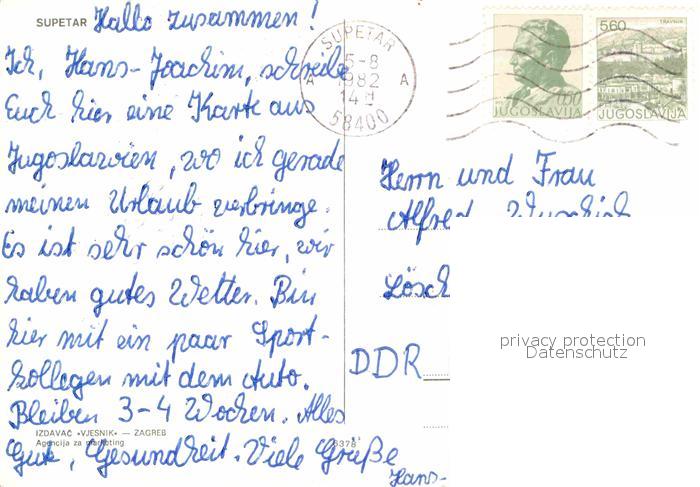 SUPETAR
Hallo zusammen!
Ich, Hans-Joachim, schreibe
Euch hier eine Karte aus
Jugoslawien, wo ich gerade
meinen Urlaub verbringe.
Es ist sehr schön hier, wir
haben gutes Wetter. Bin
hier mit ein paar Sport-
kollegen mit dem Auto.
Bleiben 3-4 Wochen. Alles
Gute, Gesundheit. Viele Grüße
Hans-
IZDAVAČ »VJESNIK« — ZAGREB
Agencija za marketing
6378
SUPETAR
5-8
A 1982 A
14 H
58400
JUGOSLAVIJA
TRAVNIK
5.60
JUGOSLAVIJA
Herrn und Frau
Alfred
Lösch
DDR
privacy protection
Datenschutz